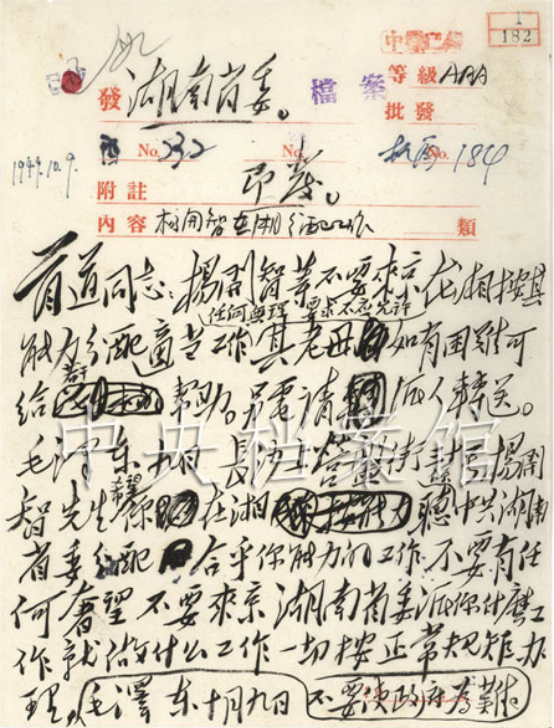 1
182
發 湖南省委。
檔案
等級 AAA
批發
No. 332
No.
No. 184
1949.10.9.
附註 即發。
內容 楊開智在湘分配工作 類
首道同志：楊開智等不要來京在湘按其
任何無理要求不應允許
能力分配適當工作其老母如有困難可
若干
給幫助。另電請派人轉送。
毛澤東九日 長沙 街 楊開
希望
智先生 你在湘聽中共湖南
省委分配合乎你能力的工作不要有任
何奢望不要來京湖南省委派你什麼工
作就做什么工作一切按正常規矩办
理，毛澤東十月九日 不要使政府為難。
中央档案馆